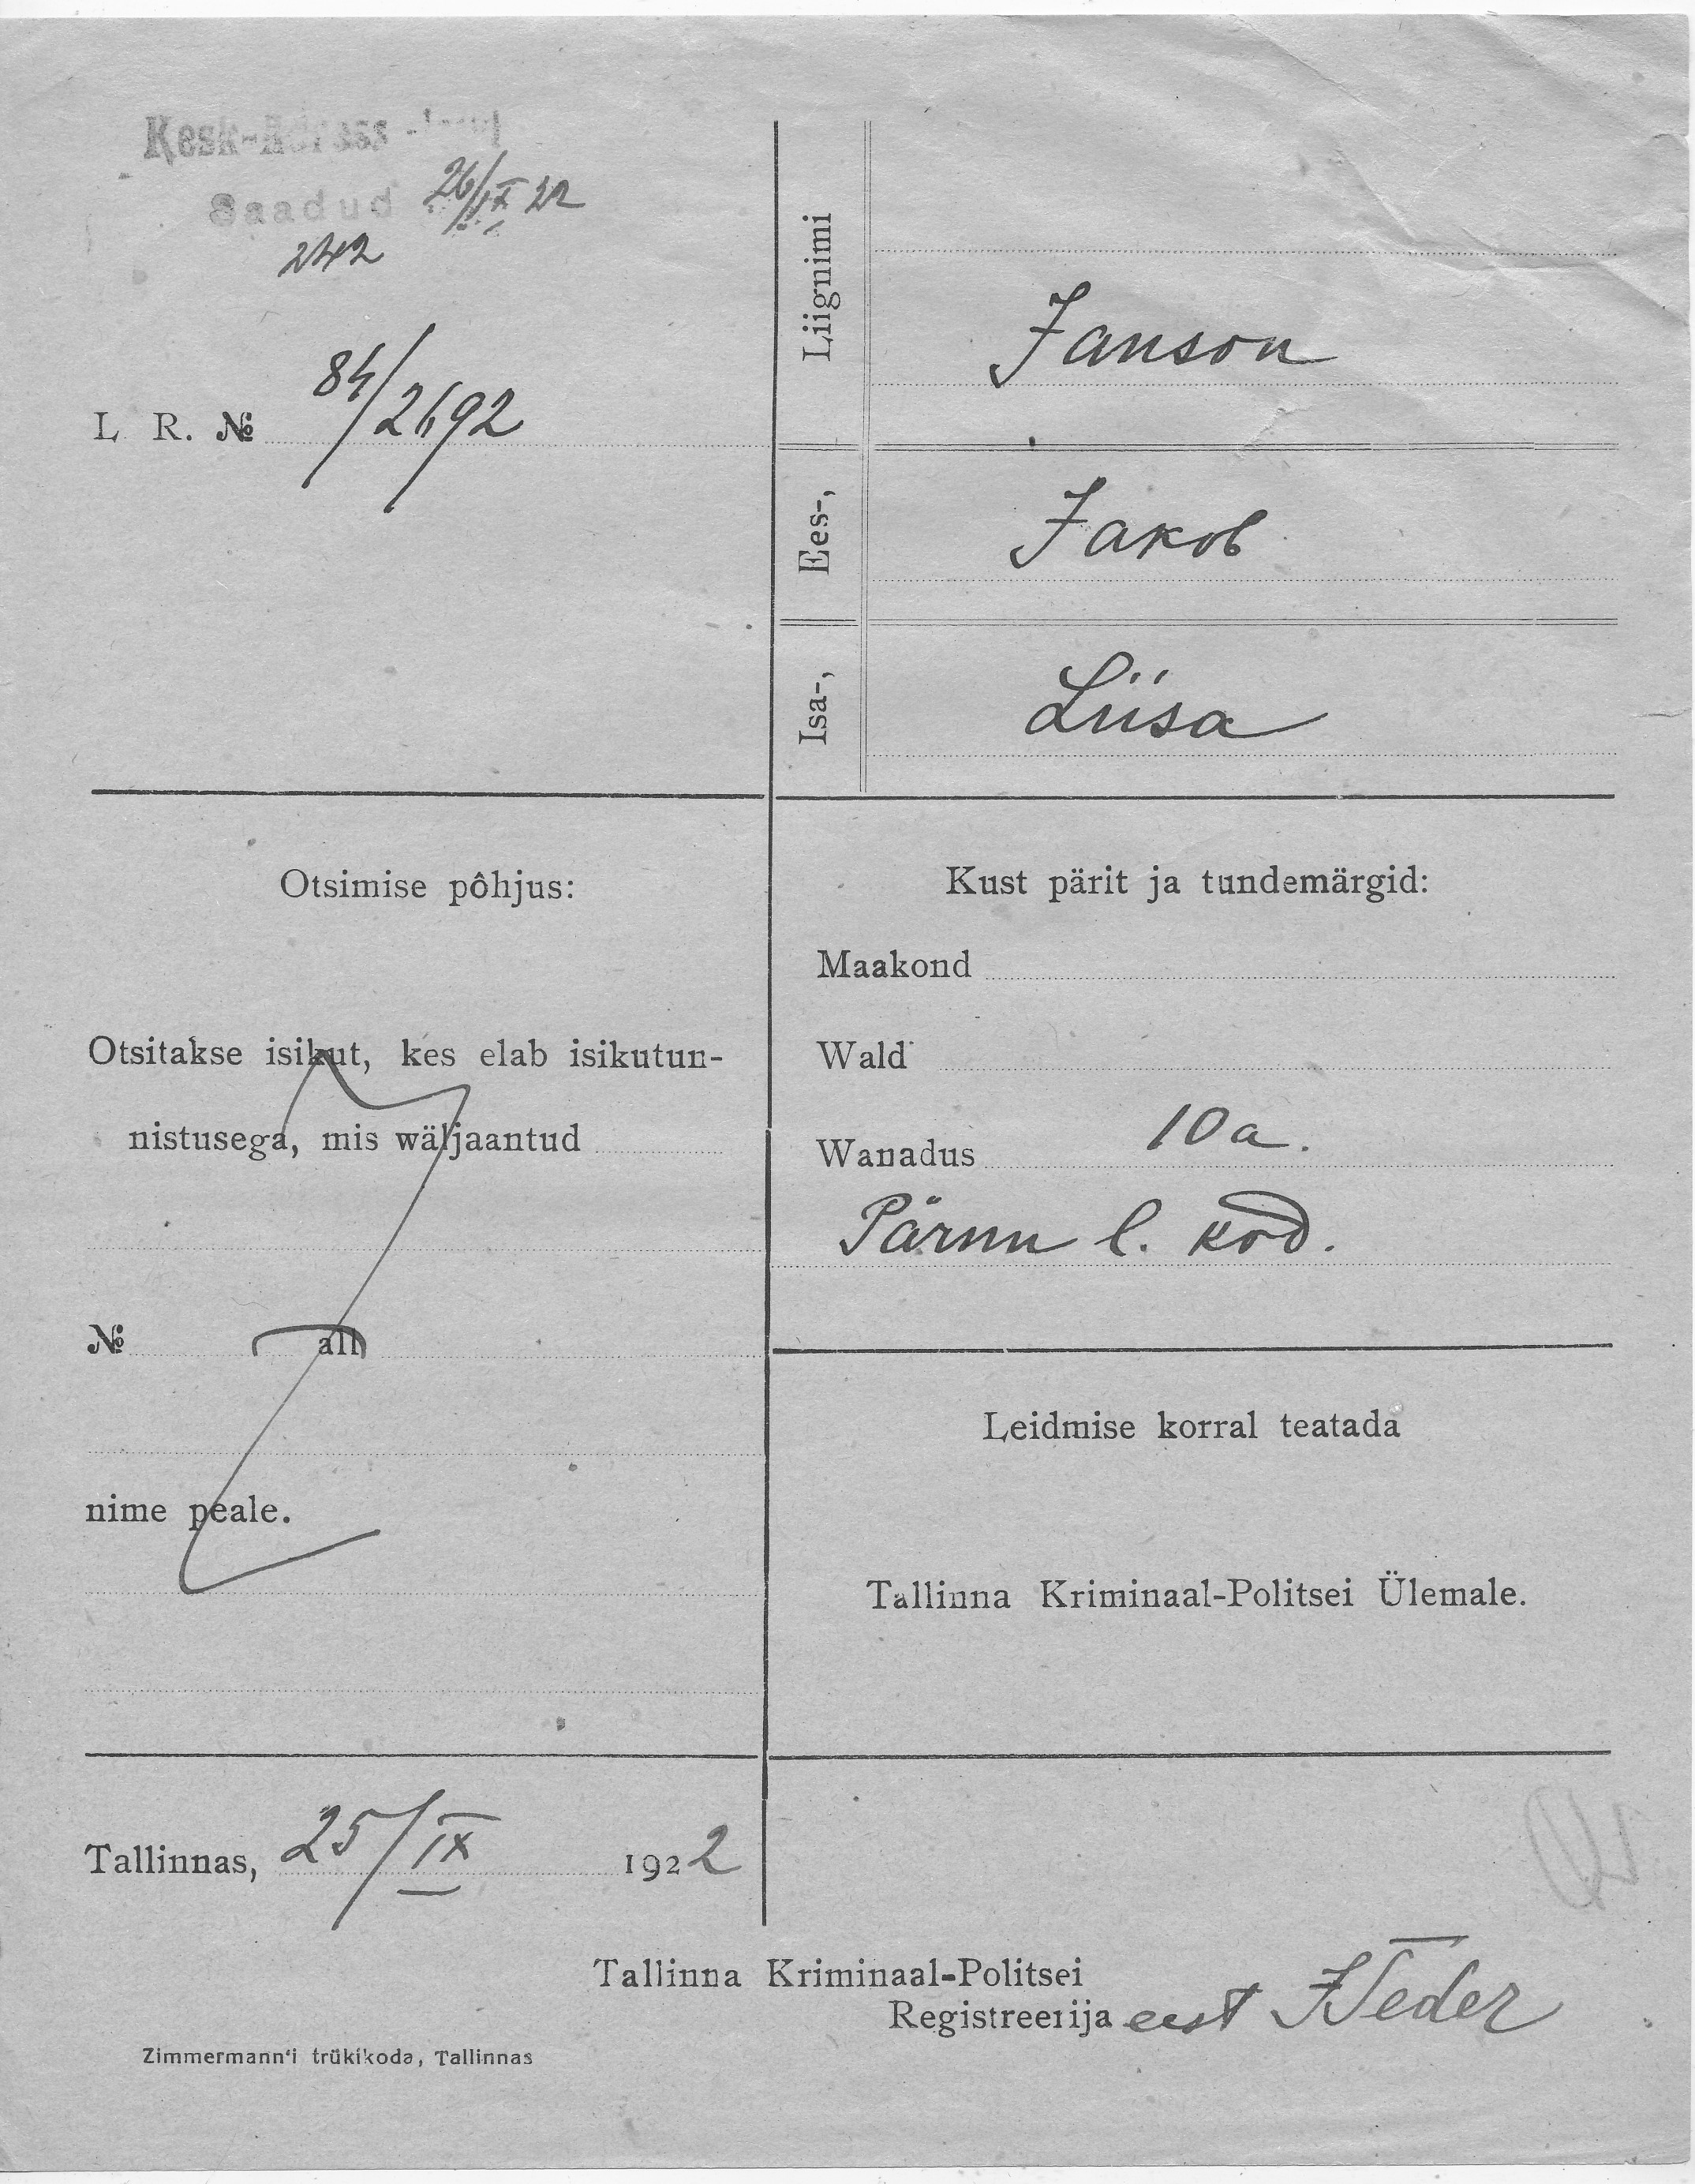 Kesk-Adress
Saadud 26/IX 22
242
L R. № 84/2692
Liignimi
Janson
Ees-,
Jakob
Isa-,
Liisa
Otsimise põhjus:
Otsitakse isikut, kes elab isikutun-
nistusega, mis wäljaantud
№ all
nime peale.
Kust pärit ja tundemärgid:
Maakond
Wald
Wanadus 10 a.
Pärnu l. kod.
Leidmise korral teatada
Tallinna Kriminaal-Politsei Ülemale.
Tallinnas, 25/IX 1922
Tallinna Kriminaal-Politsei
Registreerija eest
Zimmermann'i trükikoda, Tallinnas